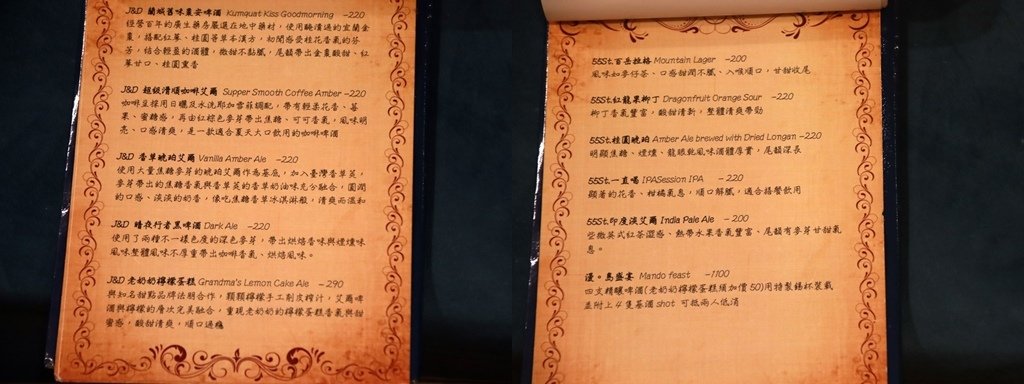 J&D 蘭城舊味棗安啤酒 Kumquat Kiss Goodmorning －220
經營百年的廣生藥房嚴選在地中藥材，使用醃漬過的宜蘭金
棗，搭配紅棗、桂圓等草本漢方，初聞感受桂花香氣的芬
芳，結合輕盈的酒體，微甜不黏膩，尾韻帶出金棗酸甜、紅
棗甘口、桂圓熏香
J&D 超級滑順咖啡艾爾 Supper Smooth Coffee Amber －220
咖啡豆採用日曬及水洗耶加雪菲調配，帶有輕柔花香、莓
果、蜜糖感，再由紅棕色麥芽帶出焦糖、可可香氣，風味明
亮、口感清爽，是一款適合夏天大口飲用的咖啡啤酒
J&D 香草琥珀艾爾 Vanilla Amber Ale －220
使用大量焦糖麥芽的琥珀艾爾作為基底，加入臺灣香草莢，
麥芽帶出的焦糖香氣與香草莢的香草奶油味充分融合，圓潤
的口感、淡淡的奶香，像吃焦糖香草冰淇淋般，清爽而溫和
J&D 暗夜行者黑啤酒 Dark Ale －220
使用了兩種不一樣色度的深色麥芽，帶出烘焙香味與煙燻味
風味整體風味不厚重帶出咖啡香氣、烘焙風味。
J&D 老奶奶檸檬蛋糕 Grandma's Lemon Cake Ale －290
與知名甜點品牌法朋合作，顆顆檸檬手工削皮榨汁，艾爾啤
酒與檸檬的層次完美融合，重現老奶奶的檸檬蛋糕香氣與甜
蜜感，酸甜清爽，順口過癮
55St.百岳拉格 Mountain Lager －200
風味如麥仔茶、口感甜潤不膩、入喉順口，甘甜收尾
55St.紅龍果柳丁 Dragonfruit Orange Sour －220
柳丁香氣豐富，酸甜清新，整體清爽帶勁
55St.桂圓琥珀 Amber Ale brewed with Dried Longan －220
明顯焦糖、煙燻、龍眼乾風味酒體厚實，尾韻深長
55St.一直喝 IPASession IPA －220
顯著的花香、柑橘氣息，順口解膩，適合搭餐飲用
55St.印度淡艾爾 India Pale Ale －200
些微英式紅茶澀感、熱帶水果香氣豐富、尾韻有麥芽甘甜氣
息。
漫。島盛宴 Mando feast －1100
四支精釀啤酒(老奶奶檸檬蛋糕須加價 50)用特製錫杯裝載
並附上 4 隻基酒 shot 可抵兩人低消